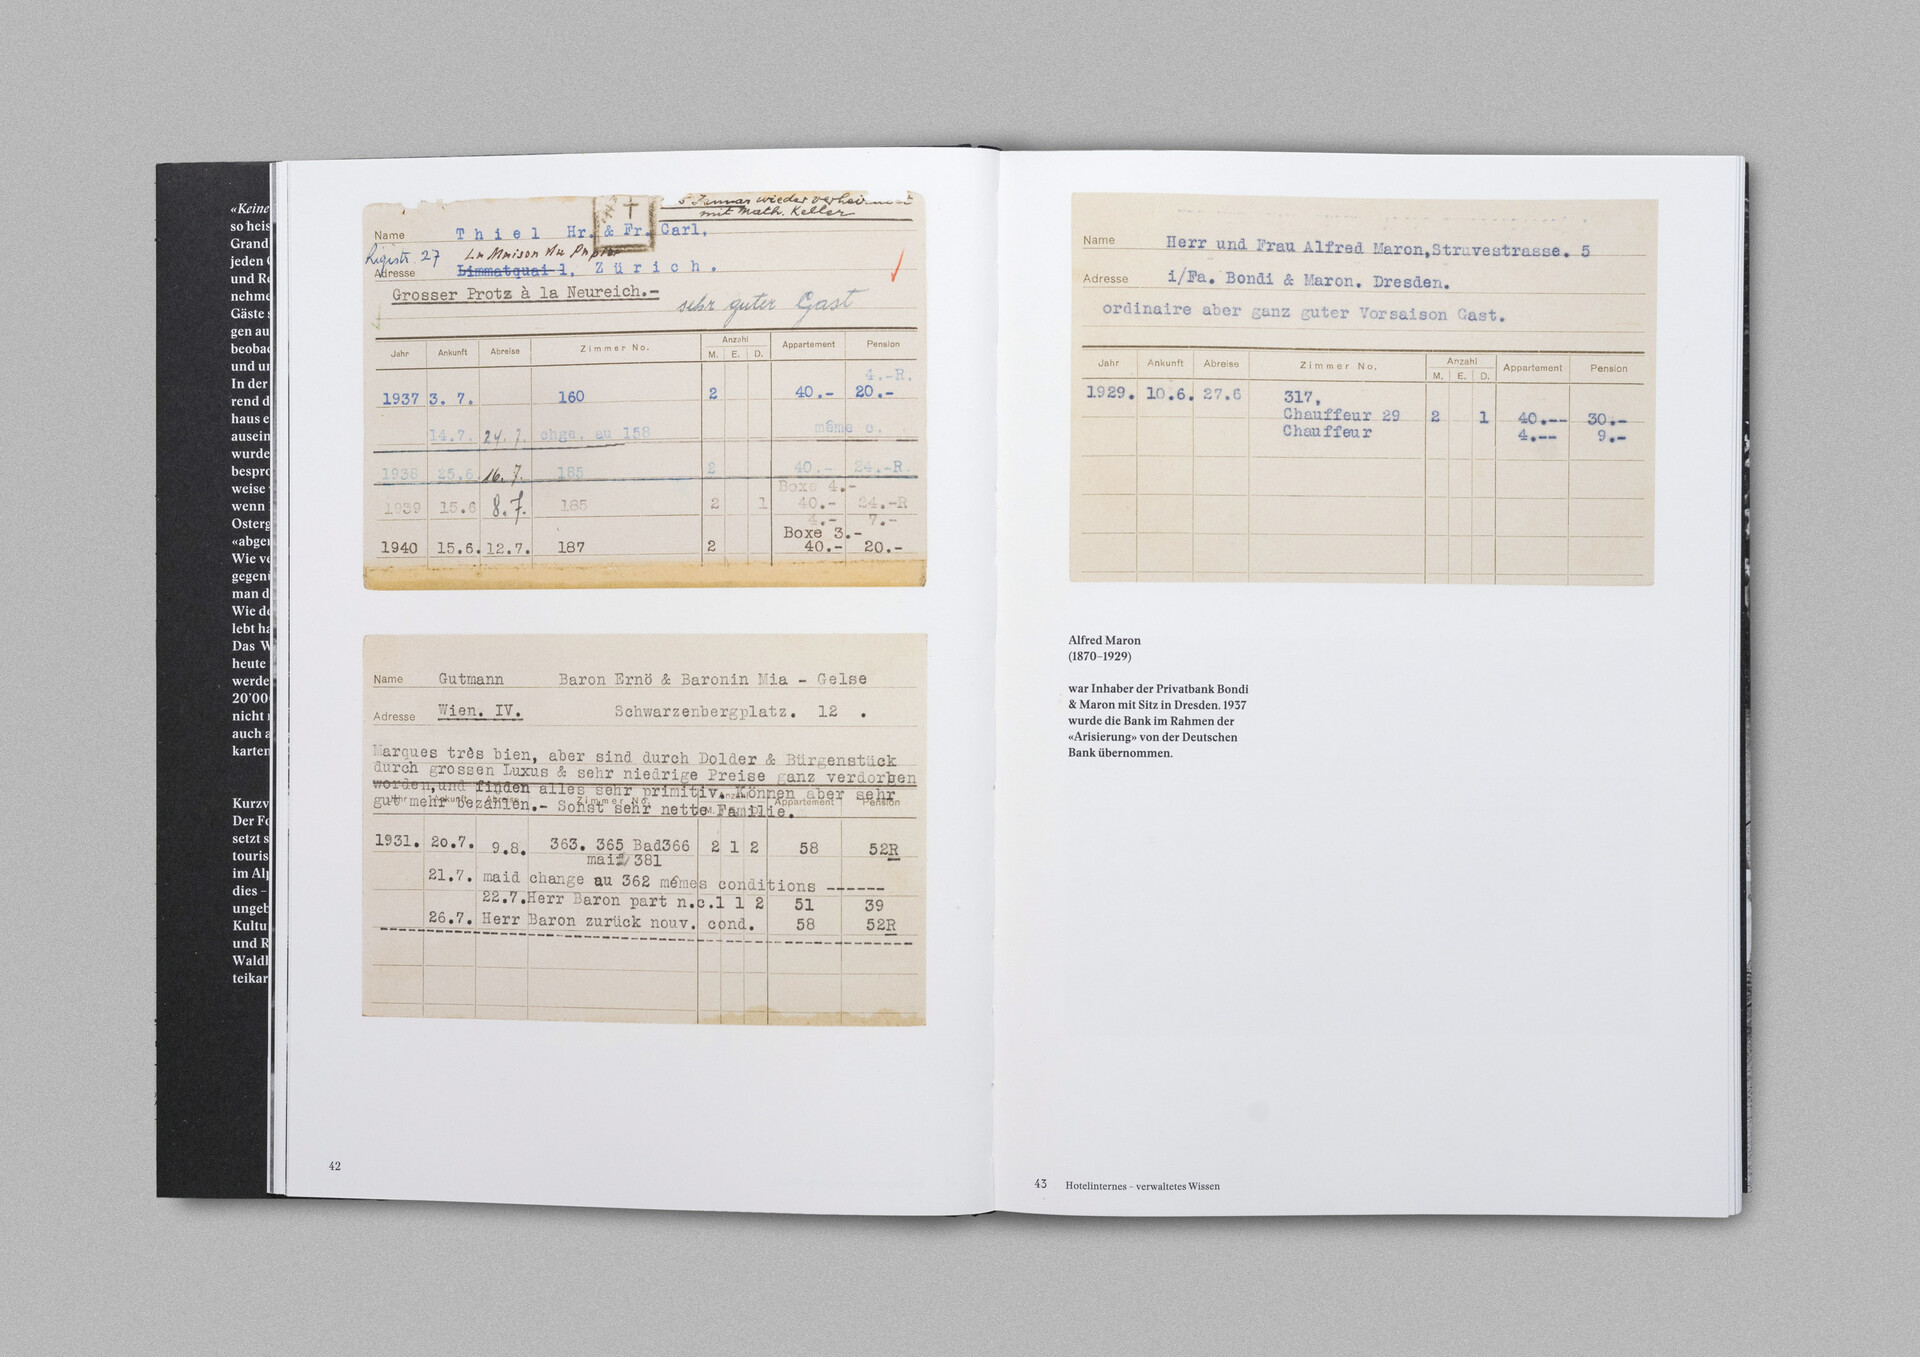 «Keine
so heis
Grand
jeden
und Re
nehme
Gäste s
gen au
beobac
und un
In der
rend d
haus e
ausein
wurde
bespro
weise
wenn
Osterg
«abge
Wie ve
gegen
man d
Wie de
lebt ha
Das W
heute
werde
20'00
nicht
auch a
karten
Kurzv
Der Fo
setzt s
touris
im Alp
dies –
ungeb
Kultu
und R
Waldh
teikar
Januar wieder
mit Math. Keller
Name Thiel Hr. & Fr. Carl,
27 La Maison du
Adresse Limmatquai 1, Zürich.
Grosser Protz à la Neureich.-
sehr guter Gast
Jahr Ankunft Abreise Zimmer No. Anzahl Appartement Pension
M. E. D.
4.-R.
1937 3. 7. 160 2 40.- 20.-
14.7. 24.7. chge. au 158 même c.
1938 25.6. 16.7. 185 2 40.- 24.-R.
Boxe 4.-
1939 15.6 8.7. 185 2 1 40.- 24.-R
4.- 7.-
Boxe 3.-
1940 15.6. 12.7. 187 2 40.- 20.-
Name Gutmann Baron Ernö & Baronin Mia - Gelse
Adresse Wien. IV. Schwarzenbergplatz. 12 .
Marques très bien, aber sind durch Dolder & Bürgenstück
durch grossen Luxus & sehr niedrige Preise ganz verdorben
worden,und finden alles sehr primitiv. Können aber sehr
gut mehr bezahlen.- Sonst sehr nette Familie.
Jahr Ankunft Abreise Zimmer No. Anzahl Appartement Pension
1931. 20.7. 9.8. 363. 365 Bad366 2 1 2 58 52R
maid 381
21.7. maid change au 362 mêmes conditions ------
22.7.Herr Baron part n.c.1 1 2 51 39
26.7. Herr Baron zurück nouv. cond. 58 52R
42
Name Herr und Frau Alfred Maron,Struvestrasse. 5
Adresse i/Fa. Bondi & Maron. Dresden.
ordinaire aber ganz guter Vorsaison Gast.
Jahr Ankunft Abreise Zimmer No. Anzahl Appartement Pension
M. E. D.
1929. 10.6. 27.6 317,
Chauffeur 29 2 1 40.-- 30.-
Chauffeur 4.-- 9.-
Alfred Maron
(1870–1929)
war Inhaber der Privatbank Bondi
& Maron mit Sitz in Dresden. 1937
wurde die Bank im Rahmen der
«Arisierung» von der Deutschen
Bank übernommen.
43 Hotelinternes – verwaltetes Wissen